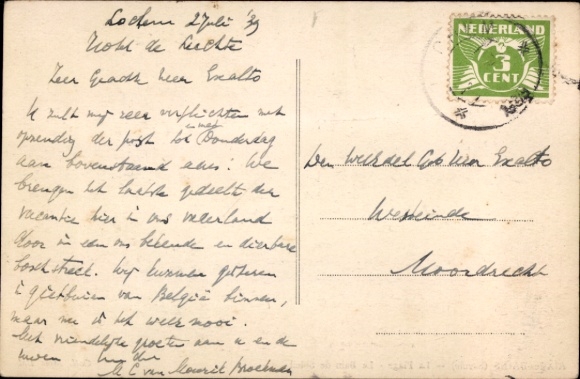 Lochem 2 Juli '39
Hotel de Luchte
Zeer Geachte Heer Exalto
U zult mij zeer verplichten met
opzending der post tot en met Donderdag
aan bovenstaand adres! We
brengen het laatste gedeelte der
vacantie hier in ons vaderland
door in een ons bekende en dierbare
boschstreek. Wij kwamen gisteren
in gietbuien van België binnen,
maar nu is het weer mooi.
Met vriendelijke groeten aan u en de
uwen
M C van Mourik Broekman
NEDERLAND
3
CENT
Den Weledel Geb. Heer Exalto
Westeinde
Moordrecht